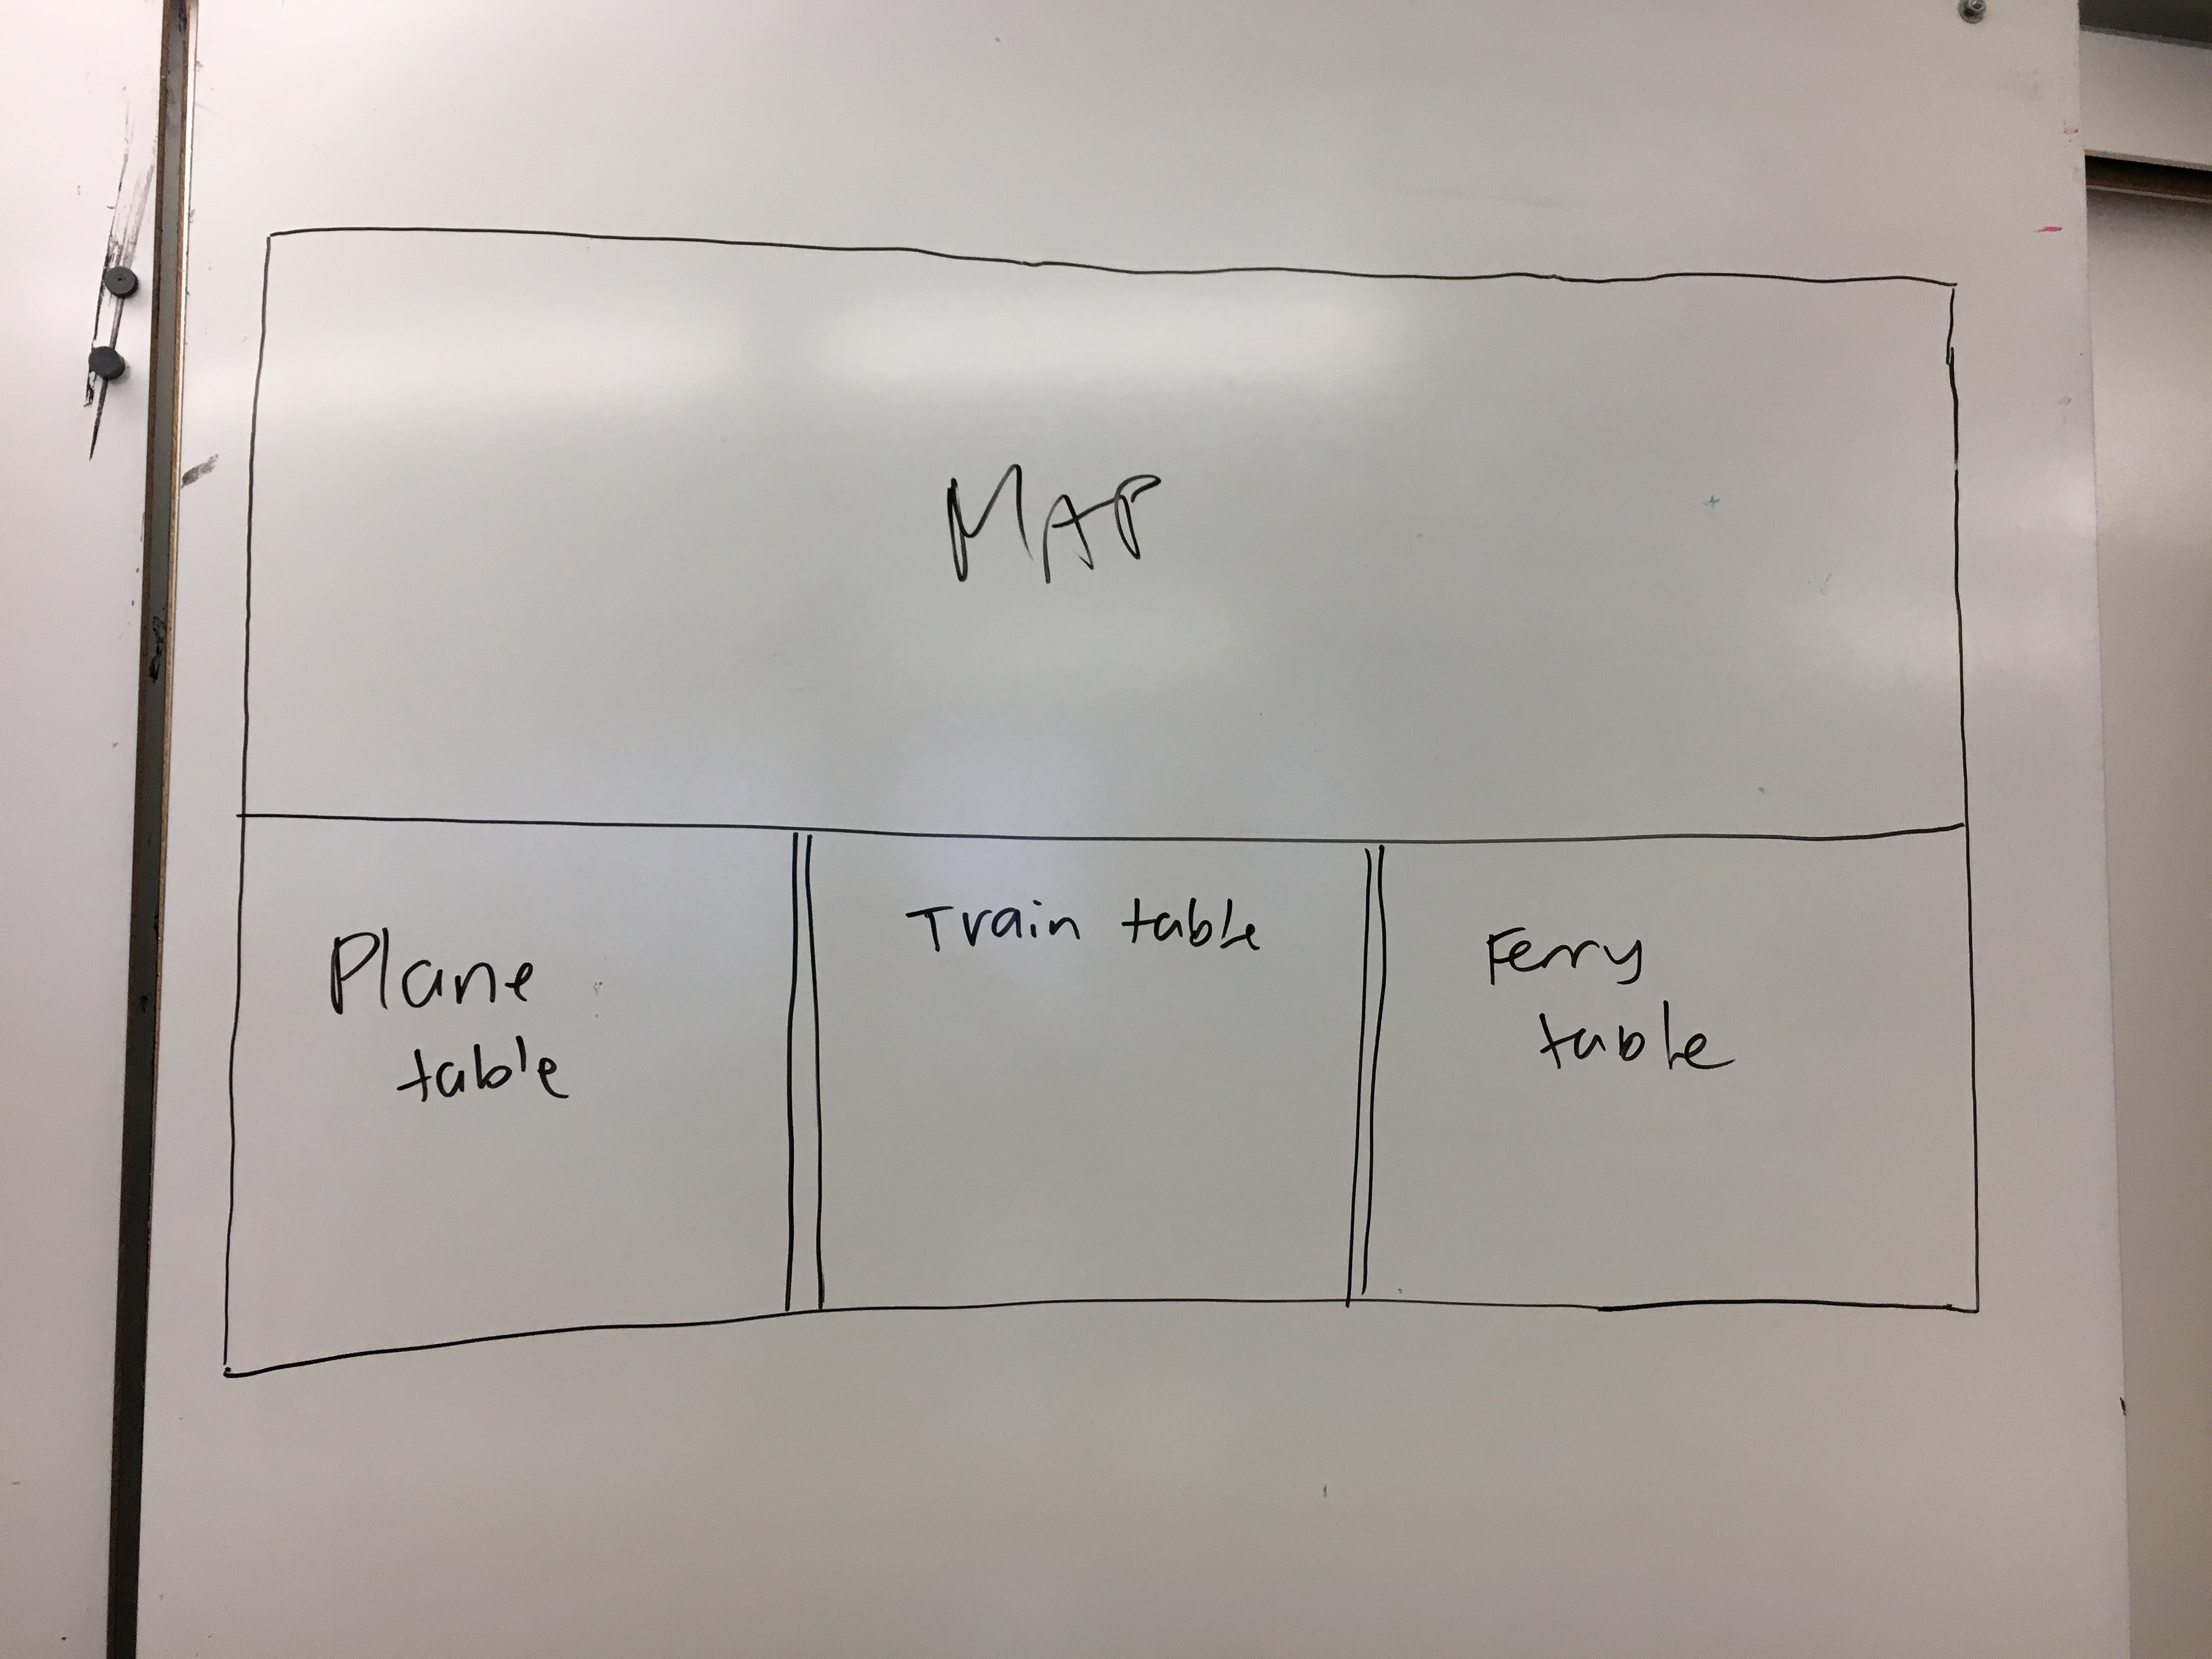 MAP
Plane
table
Train table
Ferry
table